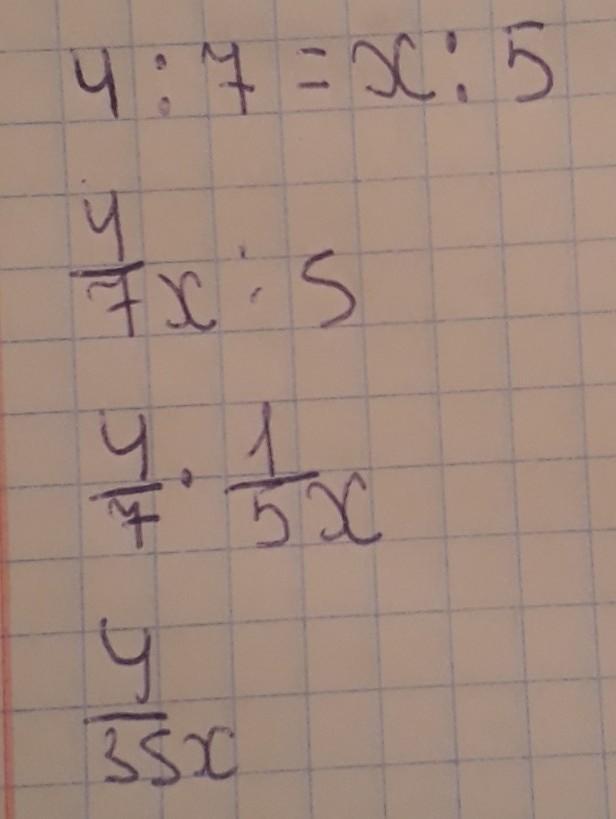 4 : 7 = x : 5
4/7x : 5
4/7 · 1/5x
4/35x